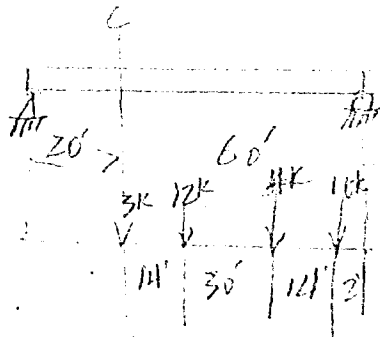 C
20' 60'
3K 12K 4K 16K
14' 30' 14' 2'